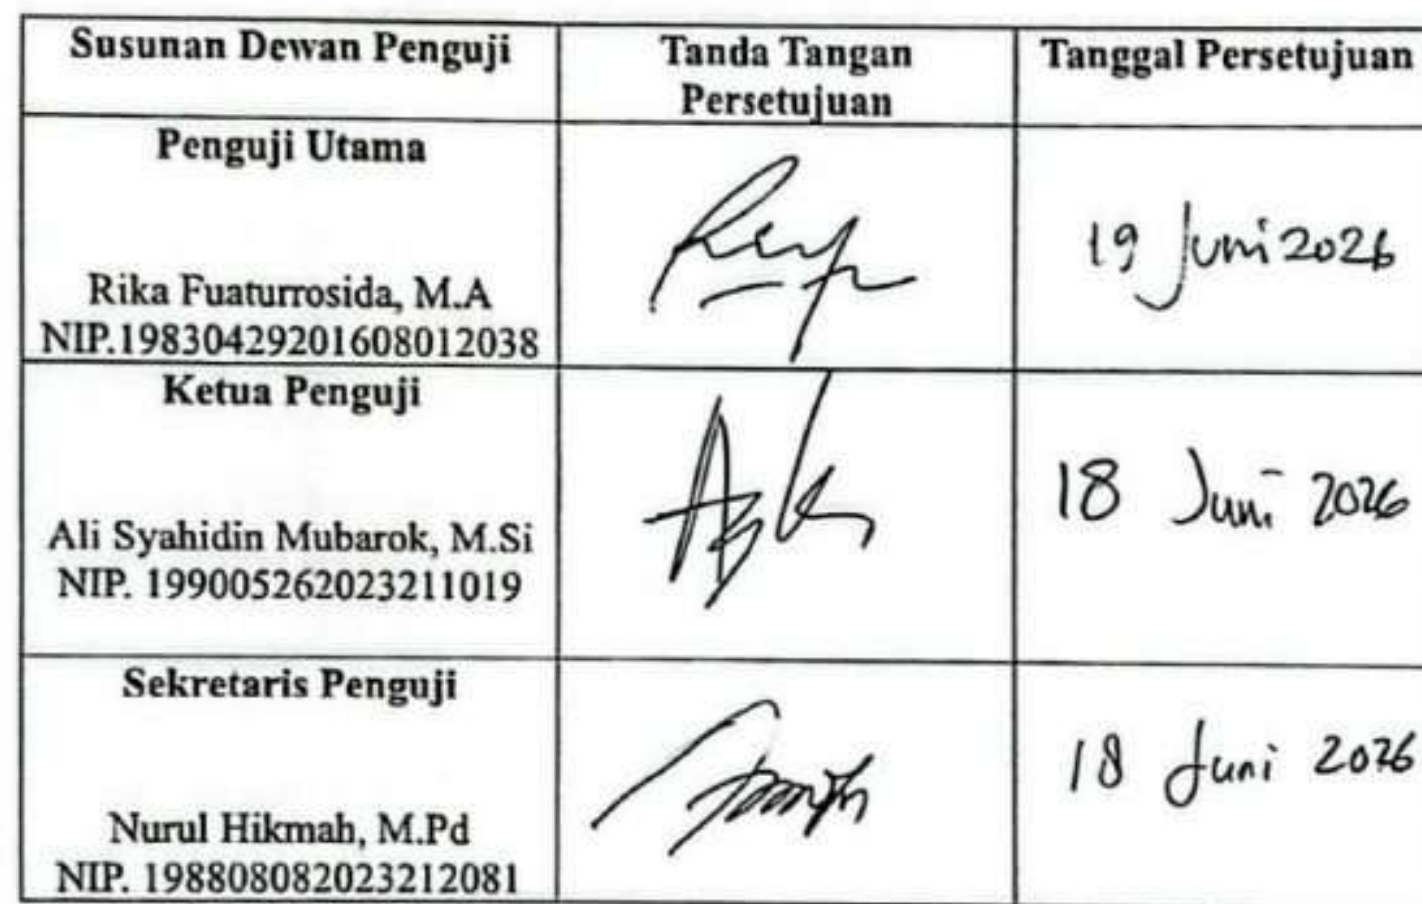 Susunan Dewan Penguji
Tanda Tangan
Persetujuan
Tanggal Persetujuan
Penguji Utama
Rika Fuaturrosida, M.A
NIP.19830429201608012038
19 Juni 2026
Ketua Penguji
Ali Syahidin Mubarok, M.Si
NIP. 199005262023211019
18 Juni 2026
Sekretaris Penguji
Nurul Hikmah, M.Pd
NIP. 198808082023212081
18 Juni 2026